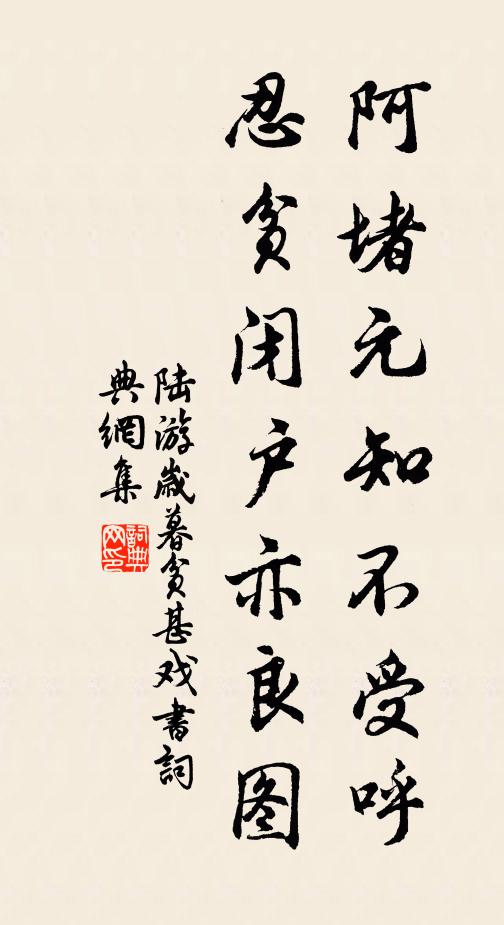 阿堵元知不受呼
忍贫闭户亦良图
陆游岁暮贫甚戏书词
典網集
詞典
网印